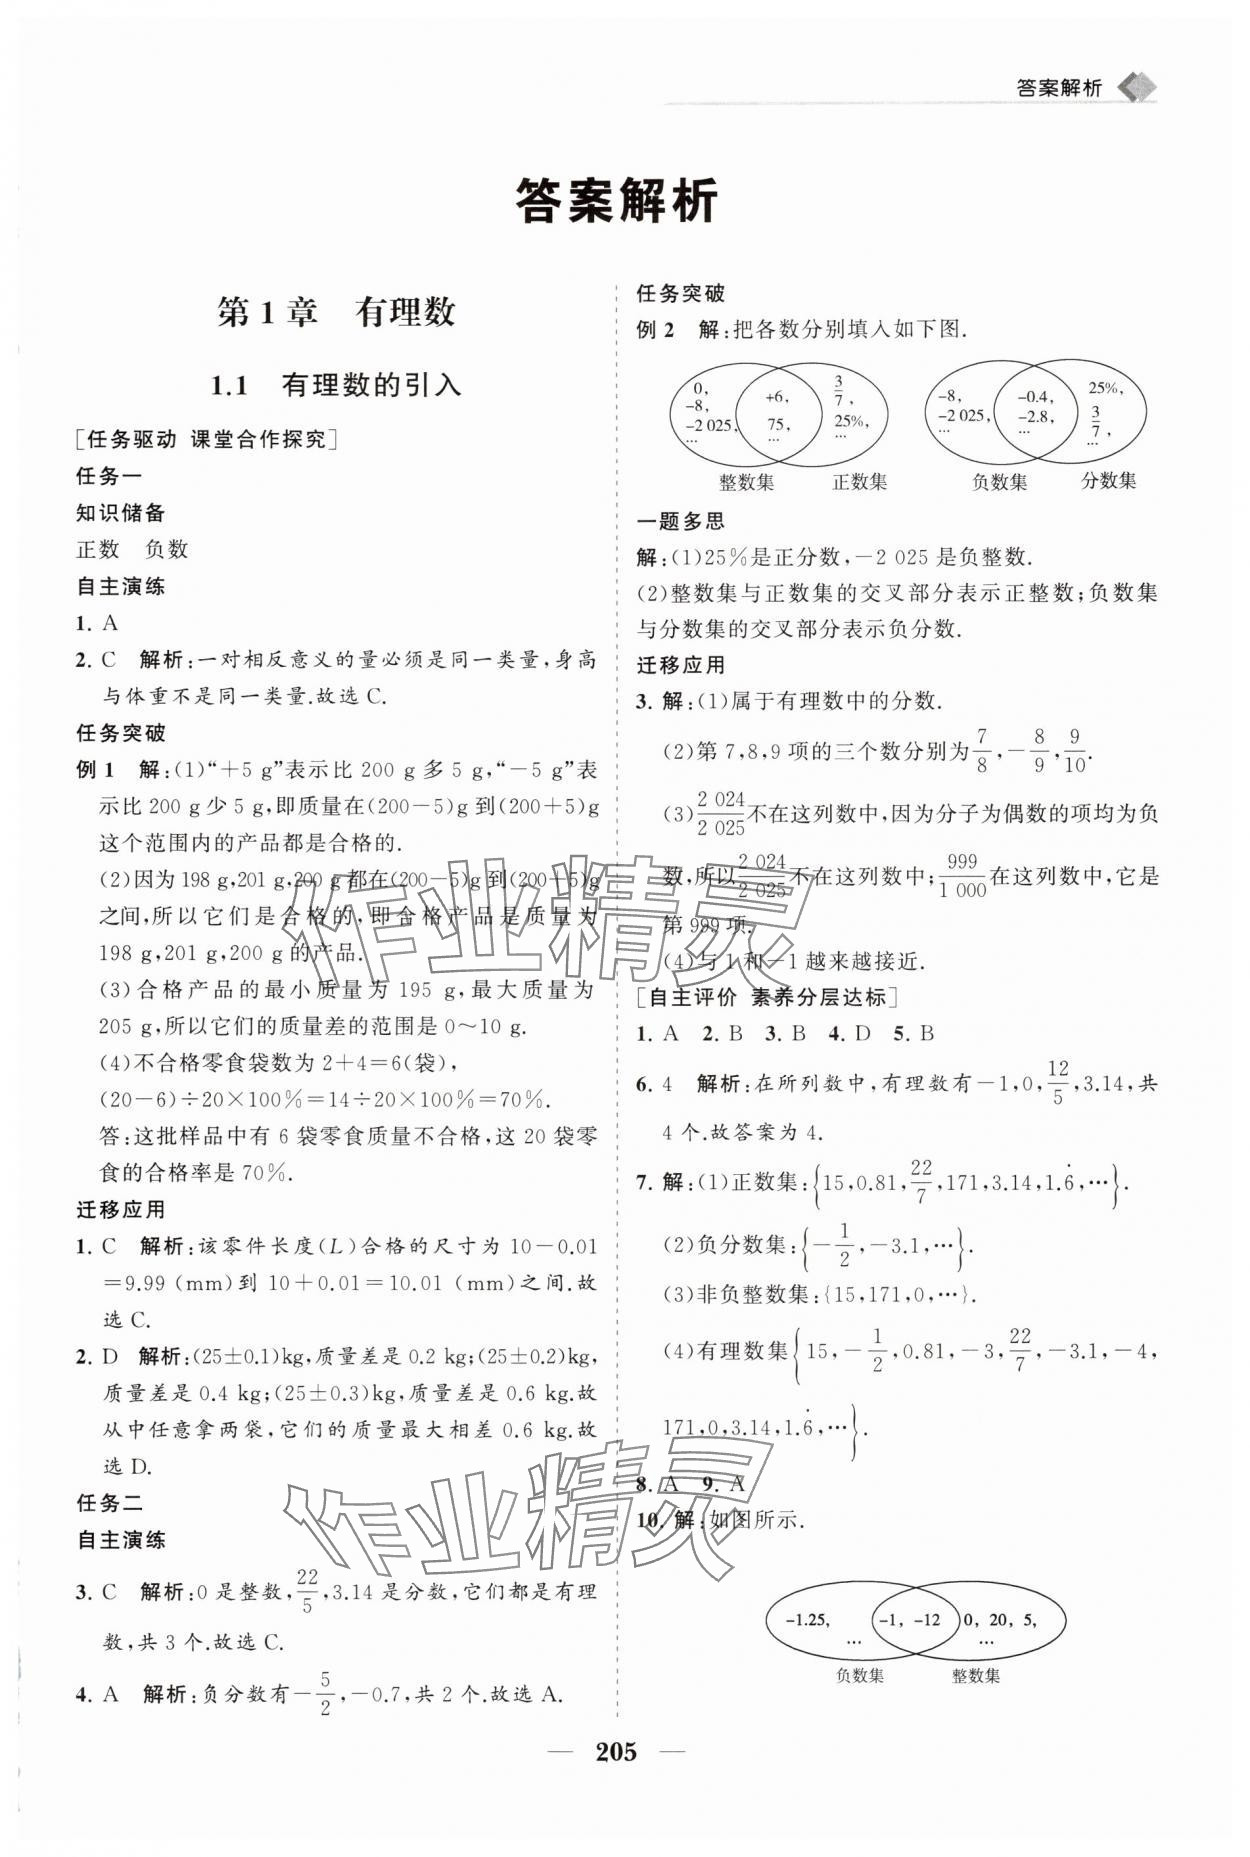 答案解析
答案解析
第 1 章 有理数
1.1 有理数的引入
[任务驱动 课堂合作探究]
任务一
知识储备
正数 负数
自主演练
1. A
2. C 解析:一对相反意义的量必须是同一类量,身高
与体重不是同一类量.故选 C.
任务突破
例 1 解:(1)“+5 g”表示比 200 g 多 5 g,“-5 g”表
示比 200 g 少 5 g,即质量在(200-5)g 到(200+5)g
这个范围内的产品都是合格的.
(2)因为 198 g,201 g,200 g 都在(200-5)g 到(200+5)g
之间,所以它们是合格的,即合格产品是质量为
198 g,201 g,200 g 的产品.
(3)合格产品的最小质量为 195 g,最大质量为
205 g,所以它们的质量差的范围是 0～10 g.
(4)不合格零食袋数为 2+4=6(袋),
(20-6)÷20×100%=14÷20×100%=70%.
答:这批样品中有 6 袋零食质量不合格,这 20 袋零
食的合格率是 70%.
迁移应用
1. C 解析:该零件长度(L)合格的尺寸为 10-0.01
=9.99 (mm)到 10+0.01=10.01 (mm)之间.故
选 C.
2. D 解析:(25±0.1)kg,质量差是 0.2 kg;(25±0.2)kg,
质量差是 0.4 kg;(25±0.3)kg,质量差是 0.6 kg.故
从中任意拿两袋,它们的质量最大相差 0.6 kg.故
选 D.
任务二
自主演练
3. C 解析:0 是整数,22/5,3.14 是分数,它们都是有理
数,共 3 个.故选 C.
4. A 解析:负分数有-5/2,-0.7,共 2 个.故选 A.
任务突破
例 2 解:把各数分别填入如下图.
0,
-8,
-2 025,
…
+6,
75,
…
3/7,
25%,
…
整数集 正数集
-8,
-2 025,
…
-0.4,
-2.8,
…
25%,
3/7,
…
负数集 分数集
一题多思
解:(1)25%是正分数,-2 025 是负整数.
(2)整数集与正数集的交叉部分表示正整数;负数集
与分数集的交叉部分表示负分数.
迁移应用
3. 解:(1)属于有理数中的分数.
(2)第 7,8,9 项的三个数分别为7/8,-8/9,9/10.
(3)2 024/2 025不在这列数中,因为分子为偶数的项均为负
数,所以2 024/2 025不在这列数中;999/1 000在这列数中,它是
第 999 项.
(4)与 1 和-1 越来越接近.
[自主评价 素养分层达标]
1. A 2. B 3. B 4. D 5. B
6. 4 解析:在所列数中,有理数有-1,0,12/5,3.14,共
4 个.故答案为 4.
7. 解:(1)正数集:{15,0.81,22/7,171,3.14,1.6̇,…}.
(2)负分数集:{-1/2,-3.1,…}.
(3)非负整数集:{15,171,0,…}.
(4)有理数集{15,-1/2,0.81,-3,22/7,-3.1,-4,
171,0,3.14,1.6̇,…}.
8. A 9. A
10. 解:如图所示.
-1.25,
…
-1, -12
0, 20, 5,
…
负数集 整数集
— 205 —
作业精灵
作业精灵